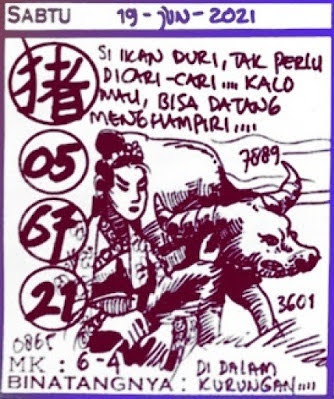 SABTU 19-JUN-2021
猪
SI IKAN DURI, TAK PERLU
DICARI-CARI.... KALO
MAU, BISA DATANG
MENGHAMPIRI....
05
7889
67
21
3601
0865
MK : 6-4
DI DALAM
BINATANGNYA : KURUNGAN....